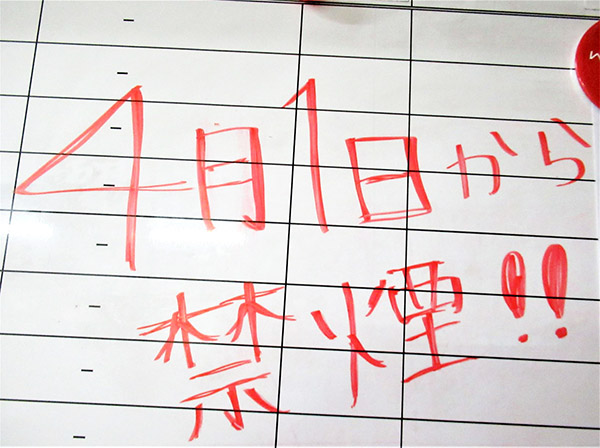 4月1日から
禁煙!!